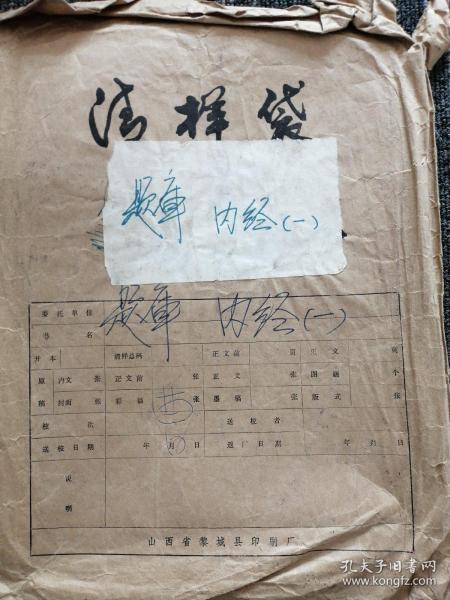 清样袋
题库 内经(一)
委托单位
书名 题库 内经(一)
开本 清样总码 正文前 页 正文 页
原 内文 张 正文前 张 正文 张 图 个
稿 封面 张 彩稿 张 墨稿 张 版式 张
校次 送校者
送校日期 年 月 日 退厂日期 年 月 日
说明
山西省黎城县印刷厂
孔夫子旧书网
www.kongfz.com